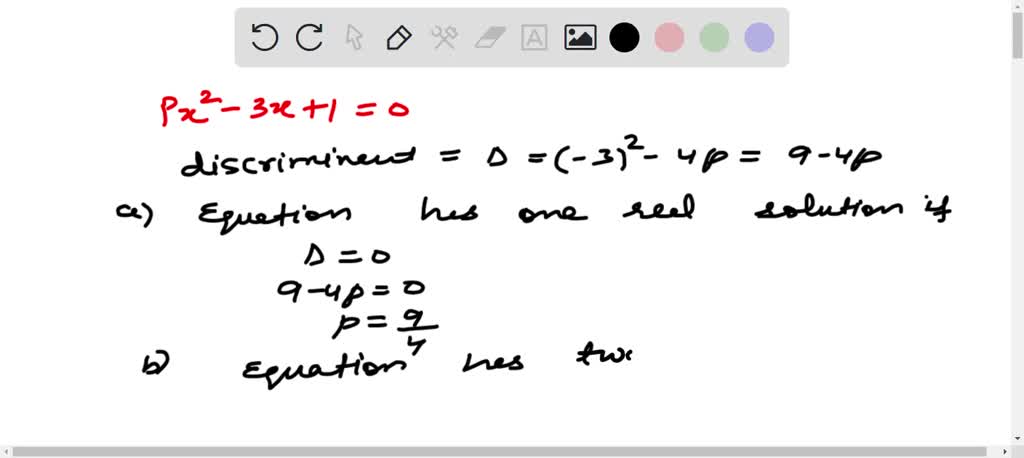 Px² - 3x + 1 = 0
discriminent = Δ = (-3)² - 4p = 9 - 4p
a) Equation has one real solution if
Δ = 0
9 - 4p = 0
p = 9/4
b) Equation has two